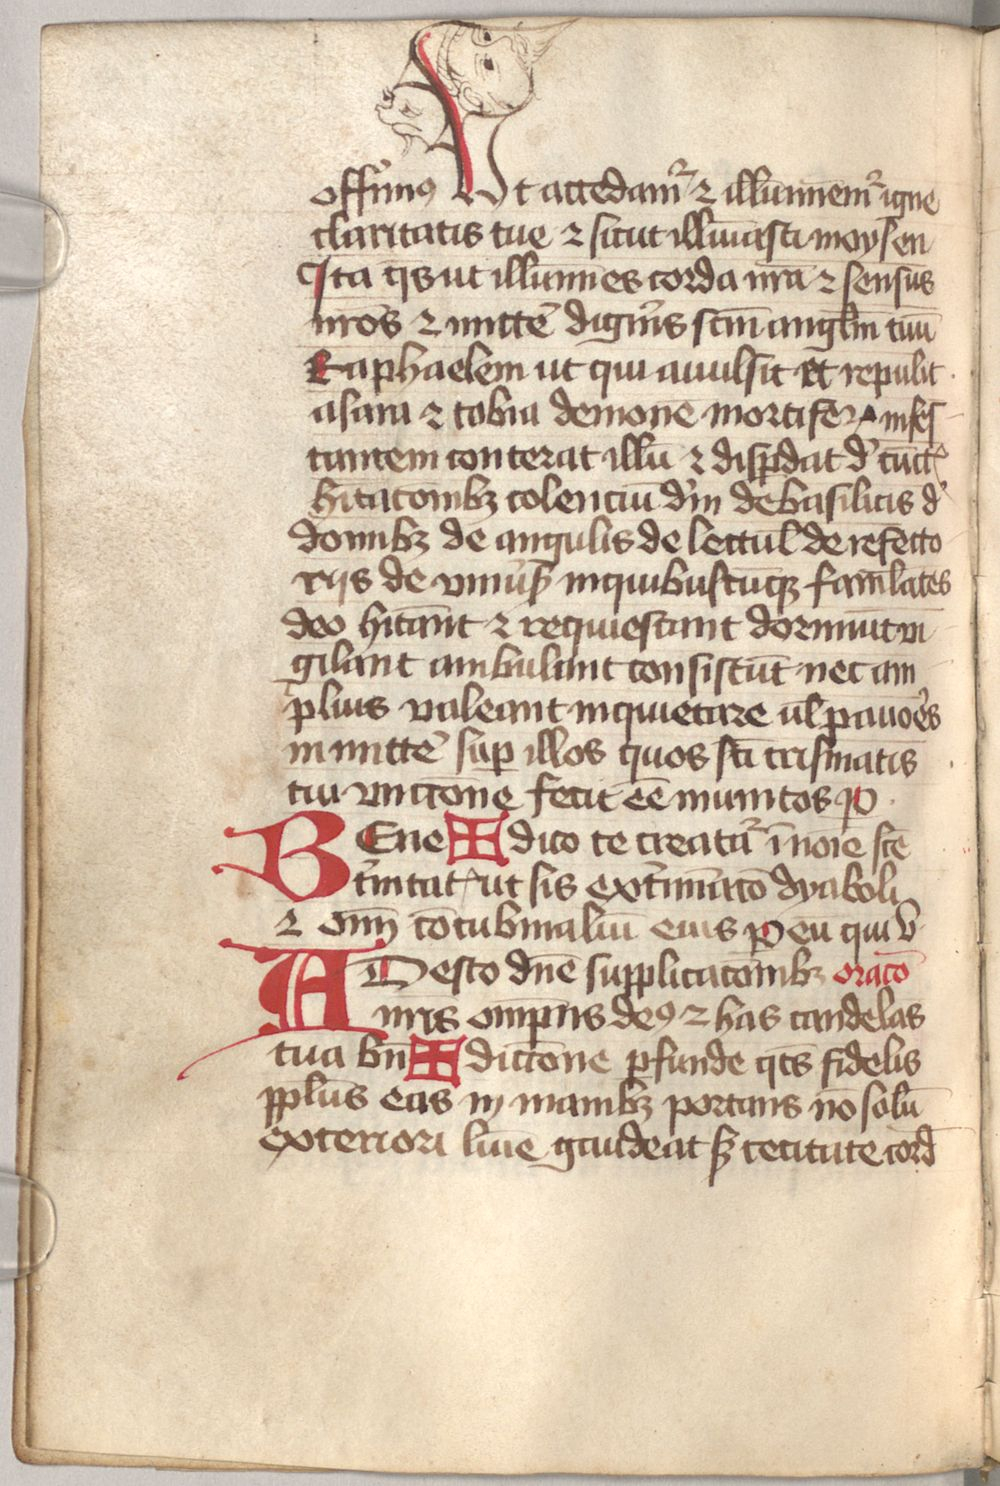 offrim⁹ Ut accedam᷑ ⁊ illūminem᷑ igne
claritatis tue ⁊ sicut illūiasti moysen
Ita q̄s ut illūmines corda nr̄a ⁊ sensus
nr̄os ⁊ mitte᷑ digner̄is scm̄ angl̄m tuū
Raphaelem ut qui auulsit et repulit
asara ⁊ tobia demone mortifer̄ infes
tantem conterat illū ⁊ disp̄dat d̕ cūct᷑
hītacōnibꝫ colenciū d̕m de basilicis d̕
domibꝫ de angulis de lectul̕ de refecto
riis de vniūs̕ in quibuscūqꝫ famlātes
deo hītant ⁊ requiescant dormiūt vi
gilant ambulant consistūt nec am
plius valeant inquietare ul̕ pauōes
inmitte᷑ sup̄ illos quos sc̄i crismatis
tui vnctōne fecit eē munitos P
BEne ✠ dico te creatu᷑ ī noīe scē
tīnitat᷑ ut sis ext᷑mīatō dyaboli
⁊ om̄ī cōtubnaliū eius P eū qui v̕
ADesto dn̄e supplicacōnibꝫ oracō
nr̄is omp̄ns de⁹ ⁊ has candelas
tua bn̄ ✠ dictōne p̄funde q̄ts fidelis
pp̄lus eas in manibꝫ portans nō solū
exteriori lūīe gaudeat s̕ cecitate cord̕